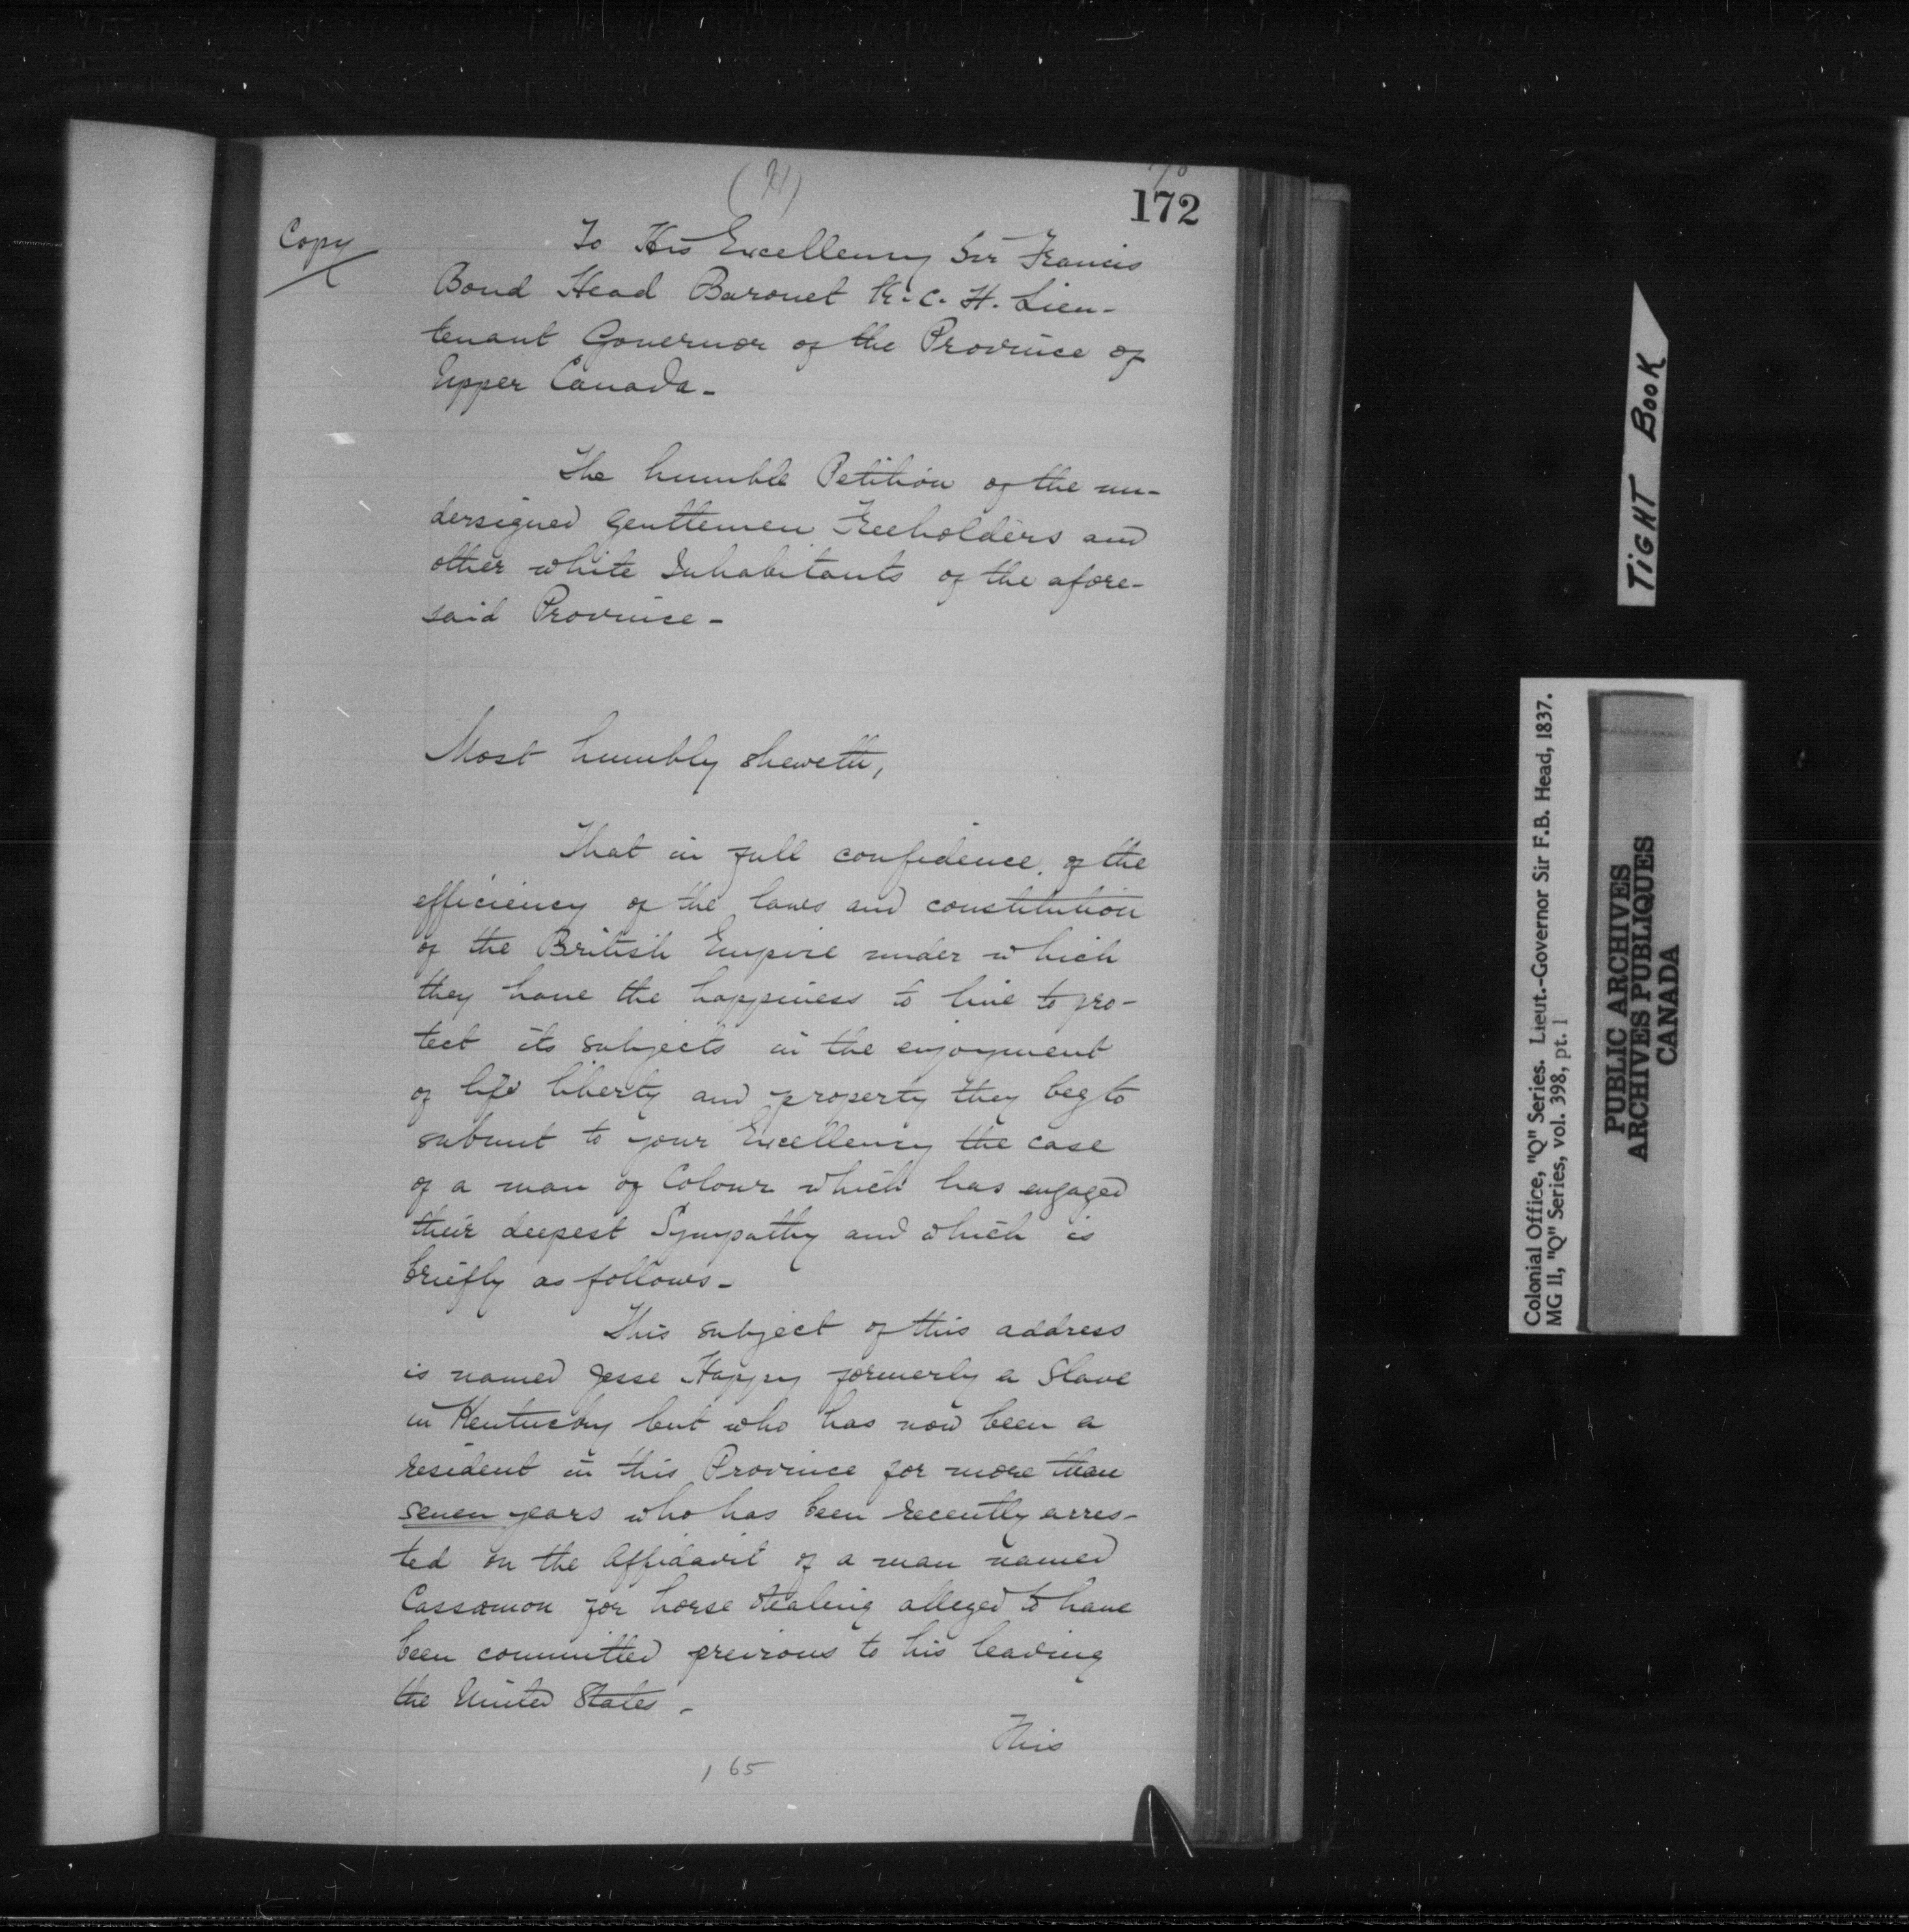 172
Copy
To His Excellency Sir Francis
Bond Head Baronet K. C. H. Lieu-
tenant Governor of the Province of
Upper Canada -
The humble Petition of the un-
dersigned Gentlemen Freeholders and
other white Inhabitants of the afore-
said Province -
Most humbly sheweth,
That in full confidence of the
efficiency of the laws and constitution
of the British Empire under which
they have the happiness to live to pro-
tect its subjects in the enjoyment
of life liberty and property they beg to
submit to your Excellency the case
of a man of Colour which has engaged
their deepest Sympathy and which is
briefly as follows -
This subject of this address
is named Jesse Happy formerly a Slave
in Kentucky but who has now been a
resident in this Province for more than
seven years who has been recently arres-
ted on the Affidavit of a man named
Cassamon for horse stealing alleged to have
been committed previous to his leaving
the United States -
This
165
TIGHT BOOK
Colonial Office, "Q" Series. Lieut.-Governor Sir F.B. Head, 1837.
MG 11, "Q" Series, vol. 398, pt. 1
PUBLIC ARCHIVES
ARCHIVES PUBLIQUES
CANADA